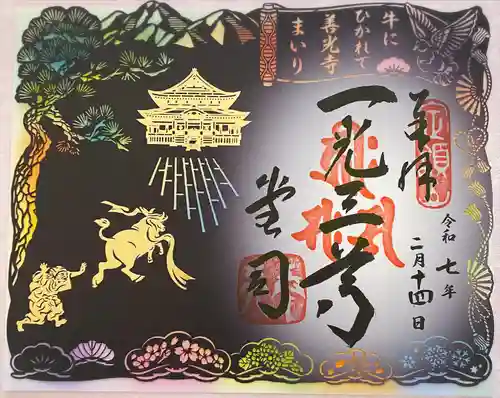 牛に
ひかれて
善光寺
まいり
奉拝
令和七年
二月十四日
一光三尊
堂司